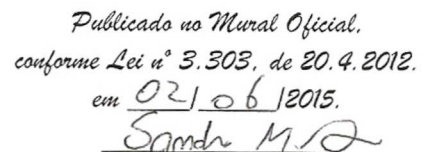 Publicado no Mural Oficial,
conforme Lei nº 3.303, de 20.4.2012.
em 02/06/2015.
Sandr M.